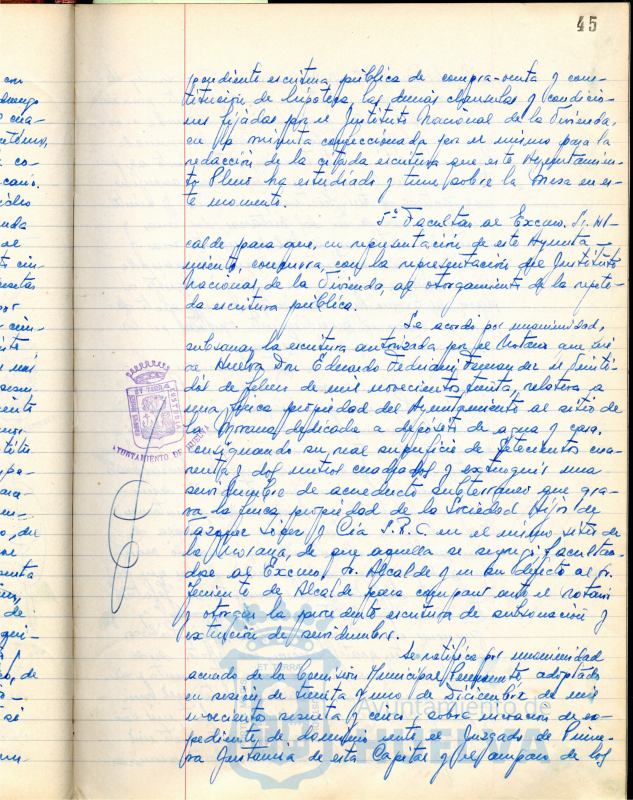 45
pendiente escritura pública de compra-venta y cons-
titución de hipoteca, las demás cláusulas y condicio-
nes fijadas por el Instituto Nacional de la Vivienda,
en la minuta confeccionada por el mismo para la
redacción de la citada escritura que este Ayuntamien-
to Pleno ha estudiado y tiene sobre la Mesa en es-
te momento.
5º Facultar al Excmo. Sr. Al-
calde para que, en representación de este Ayunta-
miento, comparezca, con la representación del Instituto
Nacional de la Vivienda, al otorgamiento de la repeti-
da escritura pública.
Se acordó por unanimidad,
subsanar la escritura autorizada por el Notario que fué
de Huelva Don Eduardo Fedriani Fernandez el veinti-
dos de Febrero de mil novecientos treinta, relativa a
una finca propiedad del Ayuntamiento al sitio de
la Morana dedicada a depósito de agua y casa,
consignando su real superficie de setecientos cua-
renta y dos metros cuadrados y extinguir una
servidumbre de acueducto subterraneo que gra-
va la finca propiedad de la Sociedad Hijos de
Vazquez Lopez y Cía S.R.C. en el mismo sitio de
la Morana, de que aquella se segregó, facultan-
dose al Excmo. Sr. Alcalde y en su defecto al Sr.
Teniente de Alcalde para comparecer ante el Notario
y otorgar la procedente escritura de subsanación y
extinción de servidumbre.
Se ratifica por unanimidad
acuerdo de la Comisión Municipal Permanente, adoptado
en sesión de treinta y uno de Diciembre de mil
novecientos sesenta y cinco, sobre incoación de ex-
pediente de dominio ante el Juzgado de Prime-
ra Instancia de esta Capital y al amparo de los
AYUNTAMIENTO DE HUELVA
Ayuntamiento de
HUELVA